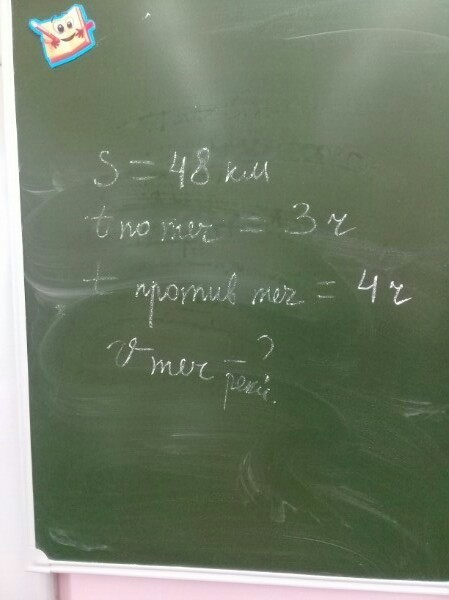 S = 48 км
t по теч = 3 ч
t против теч = 4 ч
v теч - ?
реки.